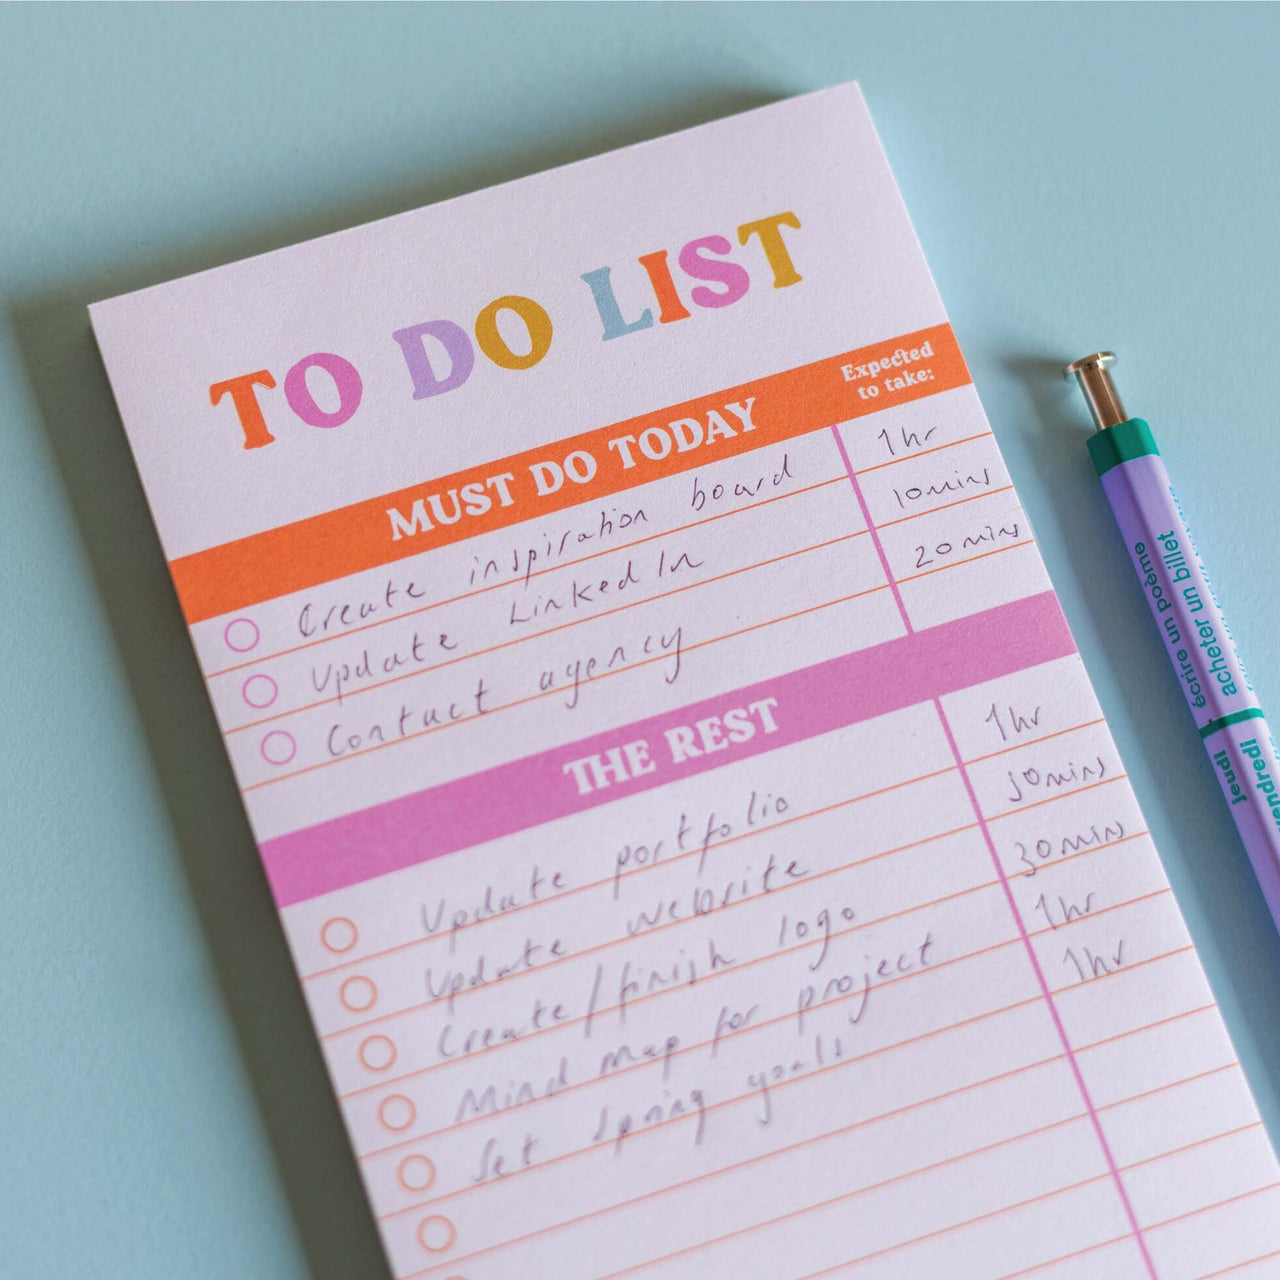 TO DO LIST
MUST DO TODAY Expected to take:
Create inspiration board 1hr
Update LinkedIn 10mins
Contact agency 20mins
THE REST
Update portfolio 1hr
Update website 30mins
Create/finish logo 30mins
Mind map for project 1hr
Set spring goals 1hr
écrire un poème
acheter un billet
Jeudi
vendredi